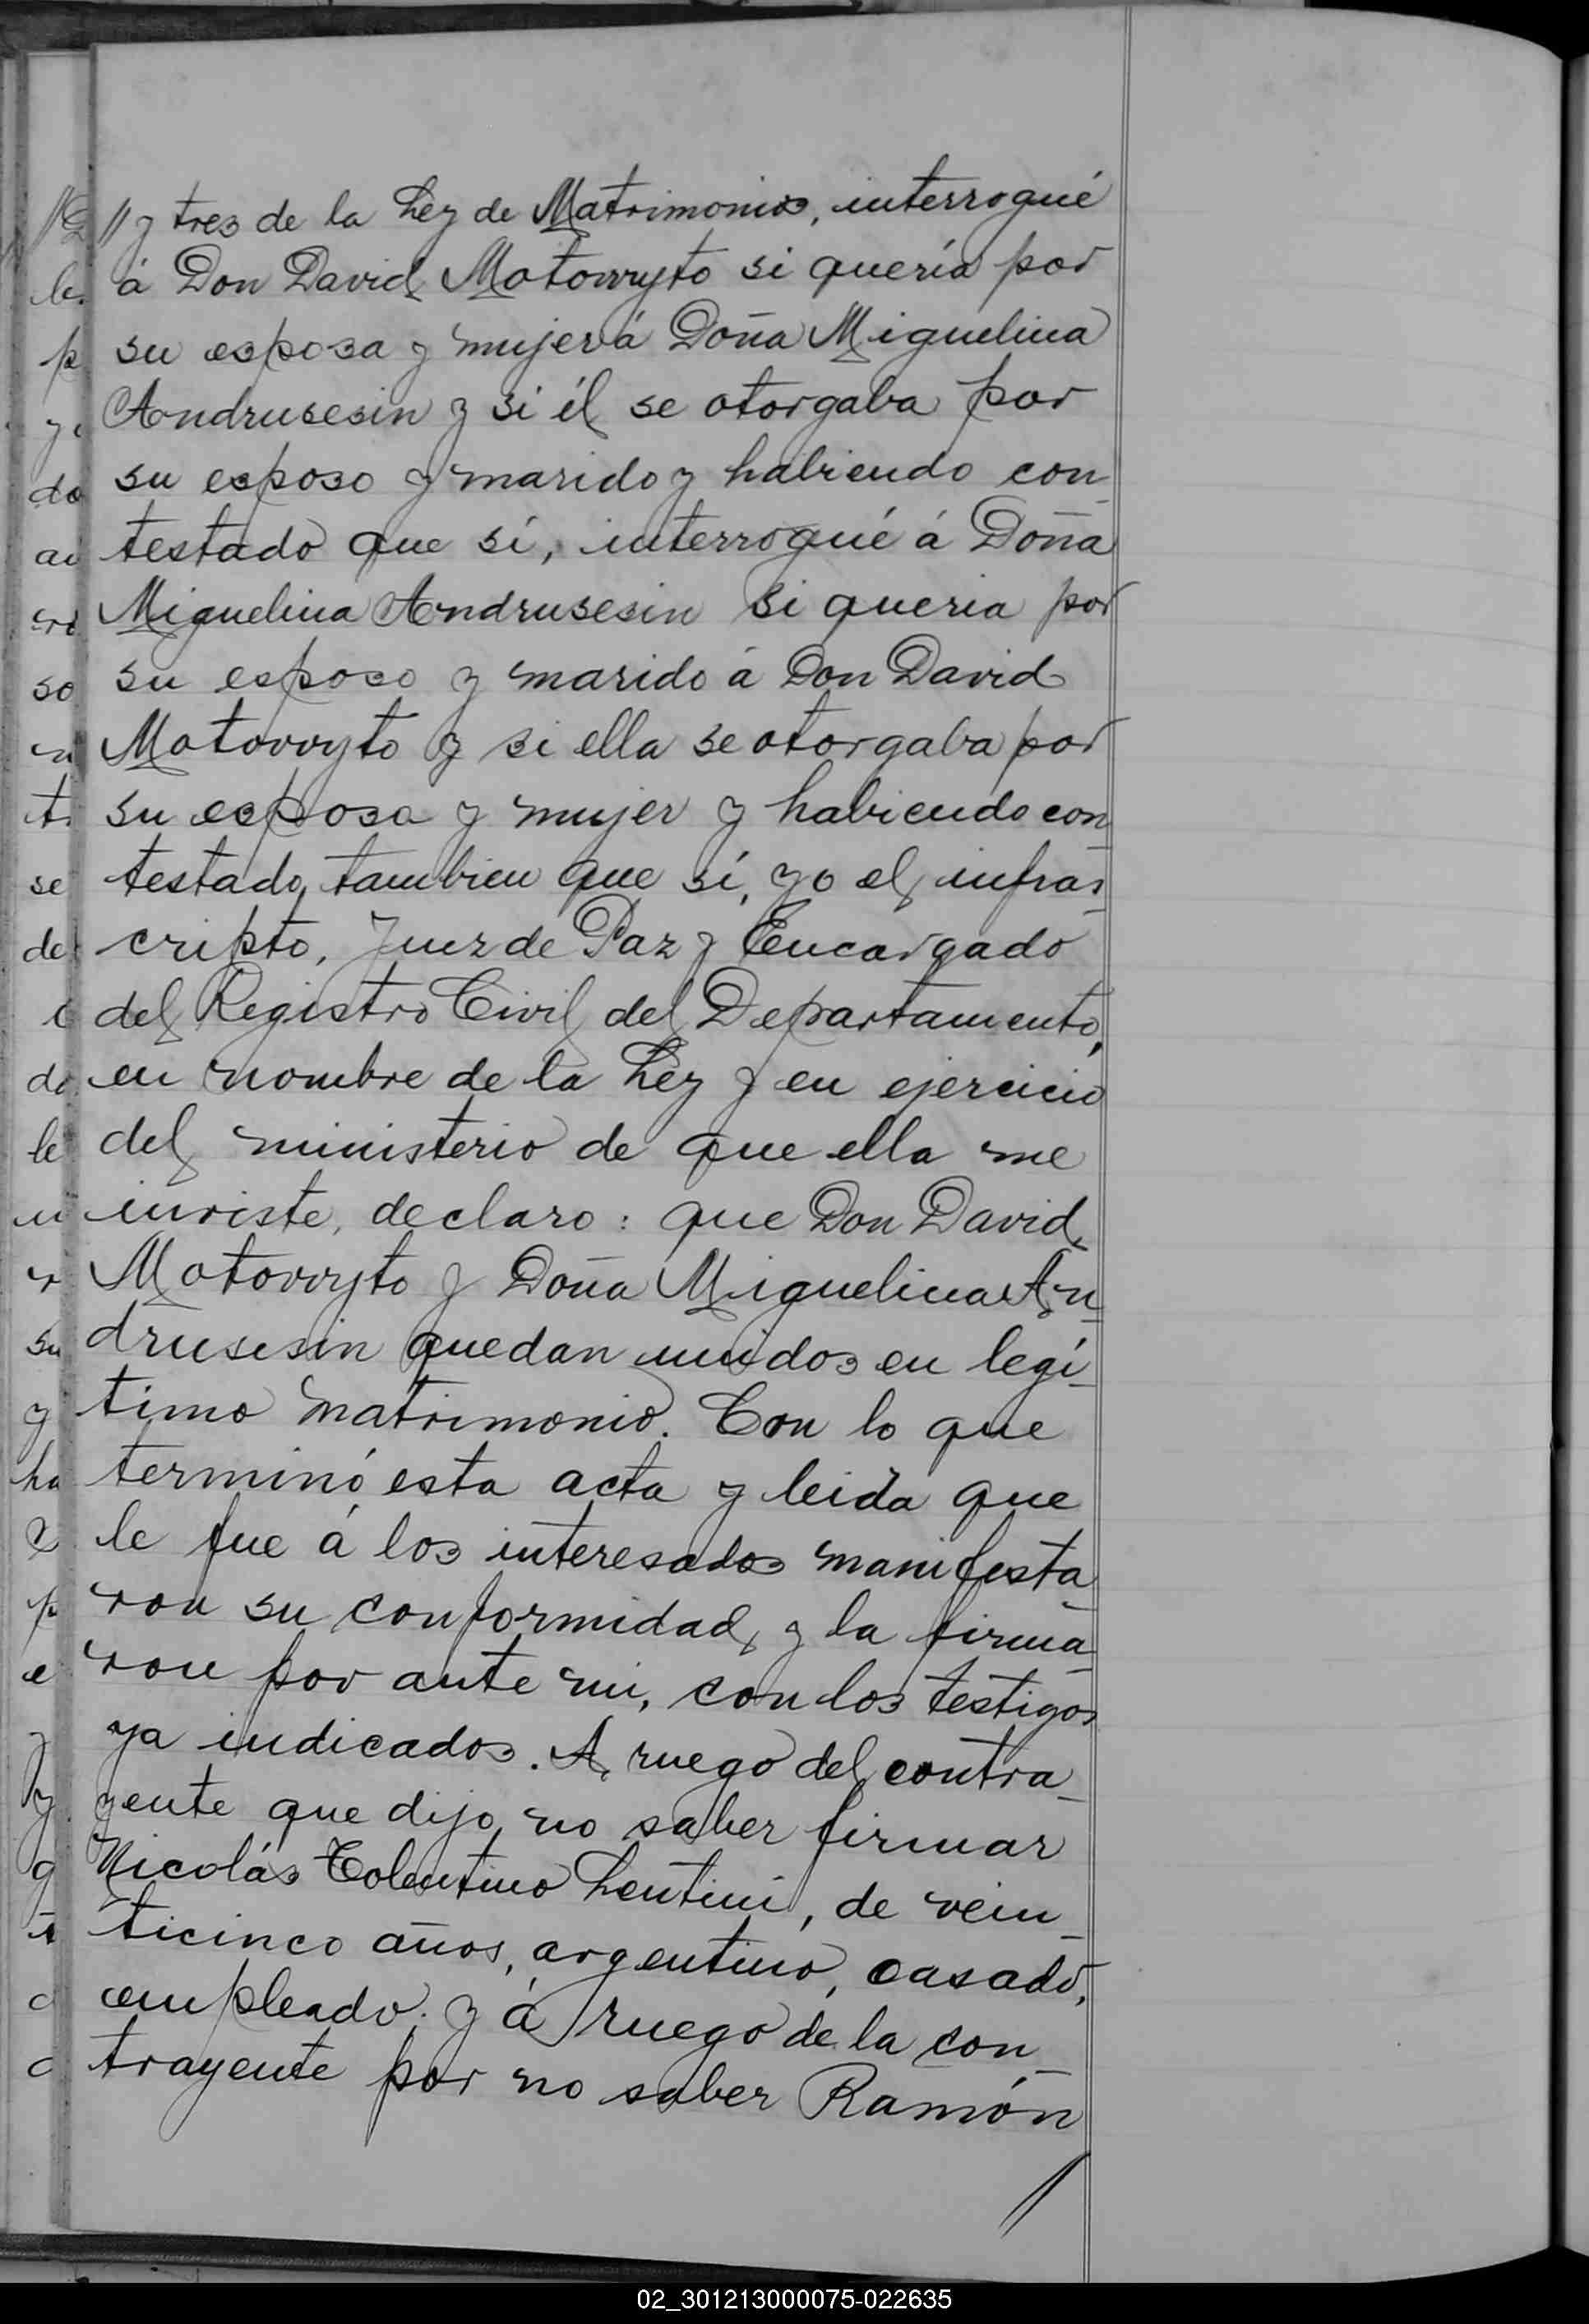 // y tres de la Ley de Matrimonio, interrogué
á Don David Motovvyto si quería por
su esposa y mujer á Doña Miguelina
Andrusesin y si él se otorgaba por
su esposo y marido y habiendo con_
testado que sí, interrogué á Doña
Miguelina Andrusesin si queria por
su esposo y marido á Don David
Motovvyto y si ella se otorgaba por
su esposa y mujer y habiendo con_
testado tambien que sí, yo el infras_
cripto, Juez de Paz y Encargado
del Registro Civil del Departamento,
en nombre de la Ley y en ejercicio
del ministerio de que ella me
inviste, declaro: que Don David
Motovvyto y Doña Miguelina An_
drusesin quedan unidos en legí_
timo matrimonio. Con lo que
terminó esta acta y leida que
le fue á los interesados manifesta_
ron su conformidad y la firma_
ron por ante mi, con los testigos
ya indicados. A ruego del contra_
yente que dijo no saber firmar
Nicolás Tolentino Lentini, de vein_
ticinco años, argentino, casado,
empleado; y á ruego de la con_
trayente por no saber Ramón
//
02_301213000075-022635